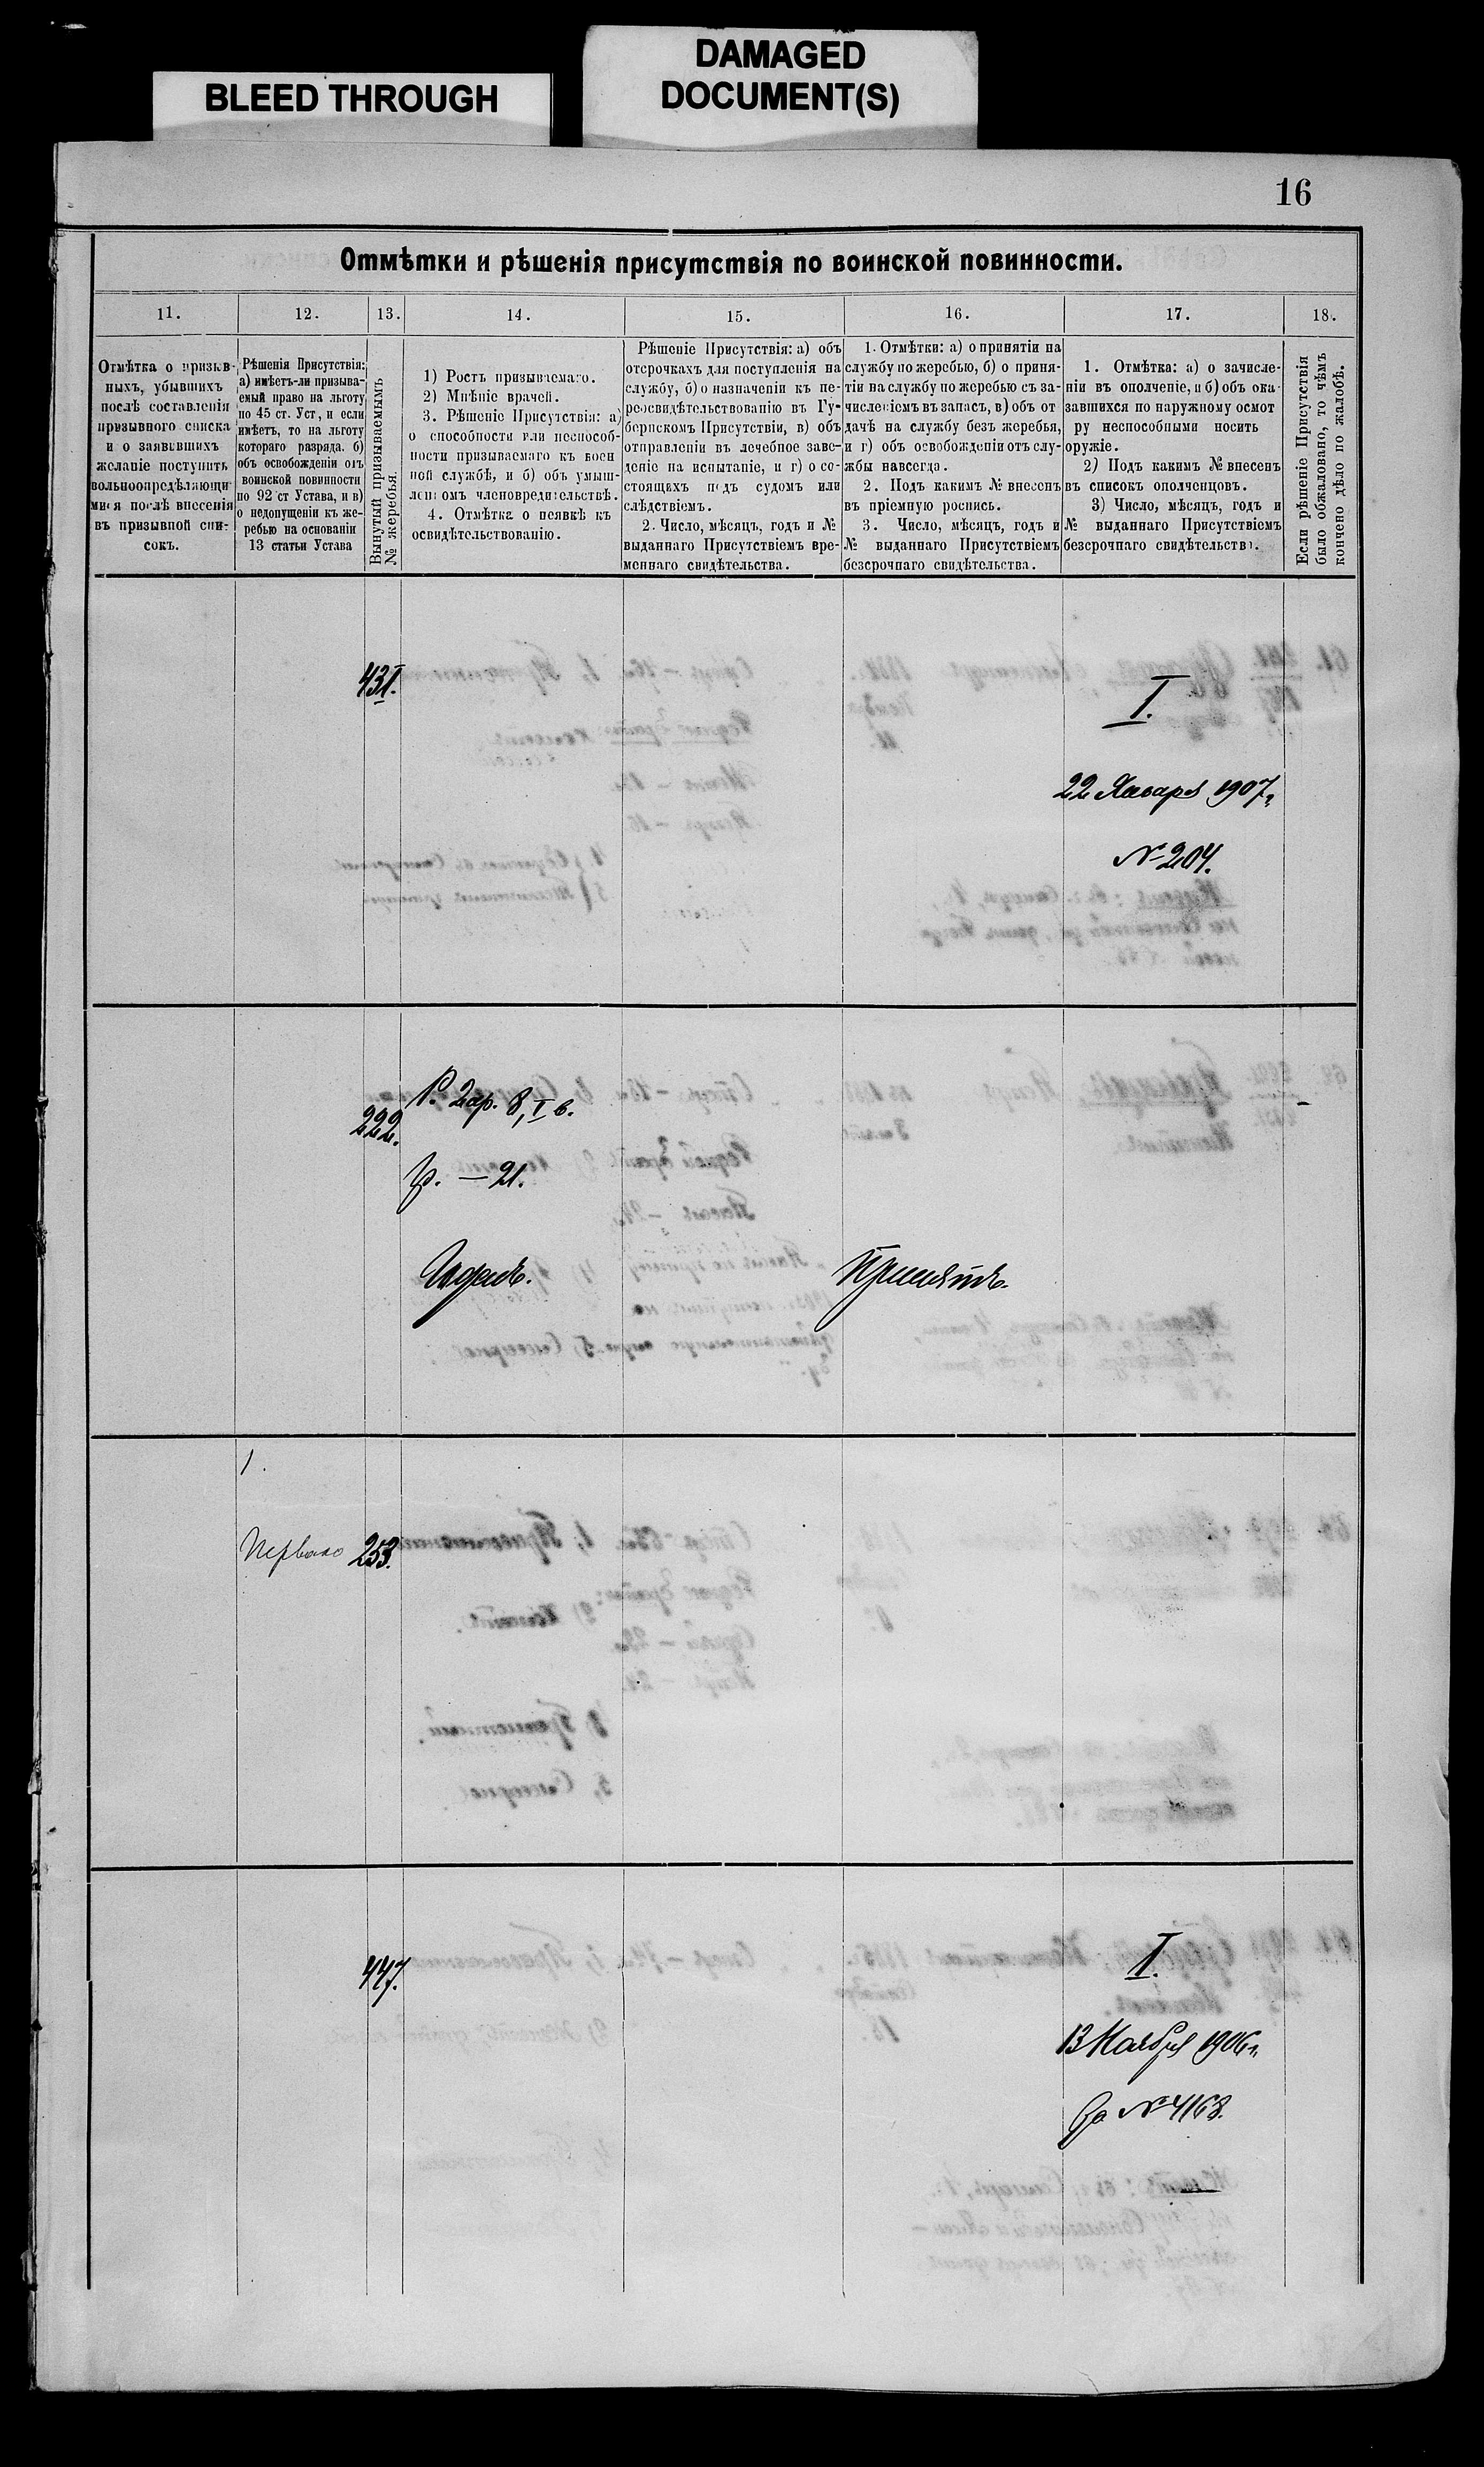 BLEED THROUGH
DAMAGED
DOCUMENT(S)
16
Отмѣтки и рѣшенія присутствія по воинской повинности.
11.
12.
13.
14.
15.
16.
17.
18.
Отмѣтка о призыв-
ныхъ, убывшихъ
послѣ составленія
призывного списка
и о заявившихъ
желаніе поступить
вольноопредѣляющи
мися послѣ внесенія
въ призывной спи-
сокъ.
Рѣшенія Присутствія:
а) имѣетъ-ли призыва-
емый право на льготу
по 45 ст. Уст, и если
имѣетъ, то на льготу
котораго разряда. б)
объ освобожденіи отъ
воинской повинности
по 92 ст Устава, и в)
о недопущеніи къ же-
ребью на основаніи
13 статьи Устава
Вынутый призываемымъ
№ жеребья.
1) Ростъ призываемаго.
2) Мнѣніе врачей.
3. Рѣшеніе Присутствія: а)
о способности или неспособ-
ности призываемаго къ воен
ной службѣ, и б) объ умыш-
леномъ членовредительствѣ.
4. Отмѣтка о неявкѣ къ
освидѣтельствованію.
Рѣшеніе Присутствія: а) объ
отсрочкахъ для поступленія на
службу, б) о назначеніи къ пе-
реосвидѣтельствованію въ Гу-
бернскомъ Присутствіи, в) объ
отправленіи въ лечебное заве-
деніе на испытаніе, и г) о со-
стоящихъ подъ судомъ или
слѣдствіемъ.
2. Число, мѣсяцъ, годъ и №
выданнаго Присутствіемъ вре-
меннаго свидѣтельства.
1. Отмѣтки: а) о принятіи на
службу по жеребью, б) о приня-
тіи на службу по жеребью съ за-
численіемъ въ запасъ, в) объ от
дачѣ на службу безъ жеребья,
и г) объ освобожденіи отъ слу-
жбы навсегда.
2. Подъ какимъ № внесенъ
въ пріемную роспись.
3. Число, мѣсяцъ, годъ и
№ выданнаго Присутствіемъ
безсрочнаго свидѣтельства.
1. Отмѣтка: а) о зачисле-
ніи въ ополченіе, и б) объ ока-
завшихся по наружному осмот
ру неспособными носить
оружіе.
2) Подъ какимъ № внесенъ
въ списокъ ополченцовъ.
3) Число, мѣсяцъ, годъ и
№ выданнаго Присутствіемъ
безсрочнаго свидѣтельства.
Если рѣшеніе Присутствія
было обжаловано, то чѣмъ
кончено дѣло по жалобѣ.
431.
I.
22 Января 1907 г.
№ 204.
222.
Р. 2 ар. 8, I в.
гр. — 21.
Годенъ.
Принятъ.
1.
Перваго
253.
447.
I.
13 Ноября 1906 г.
За № 4168.